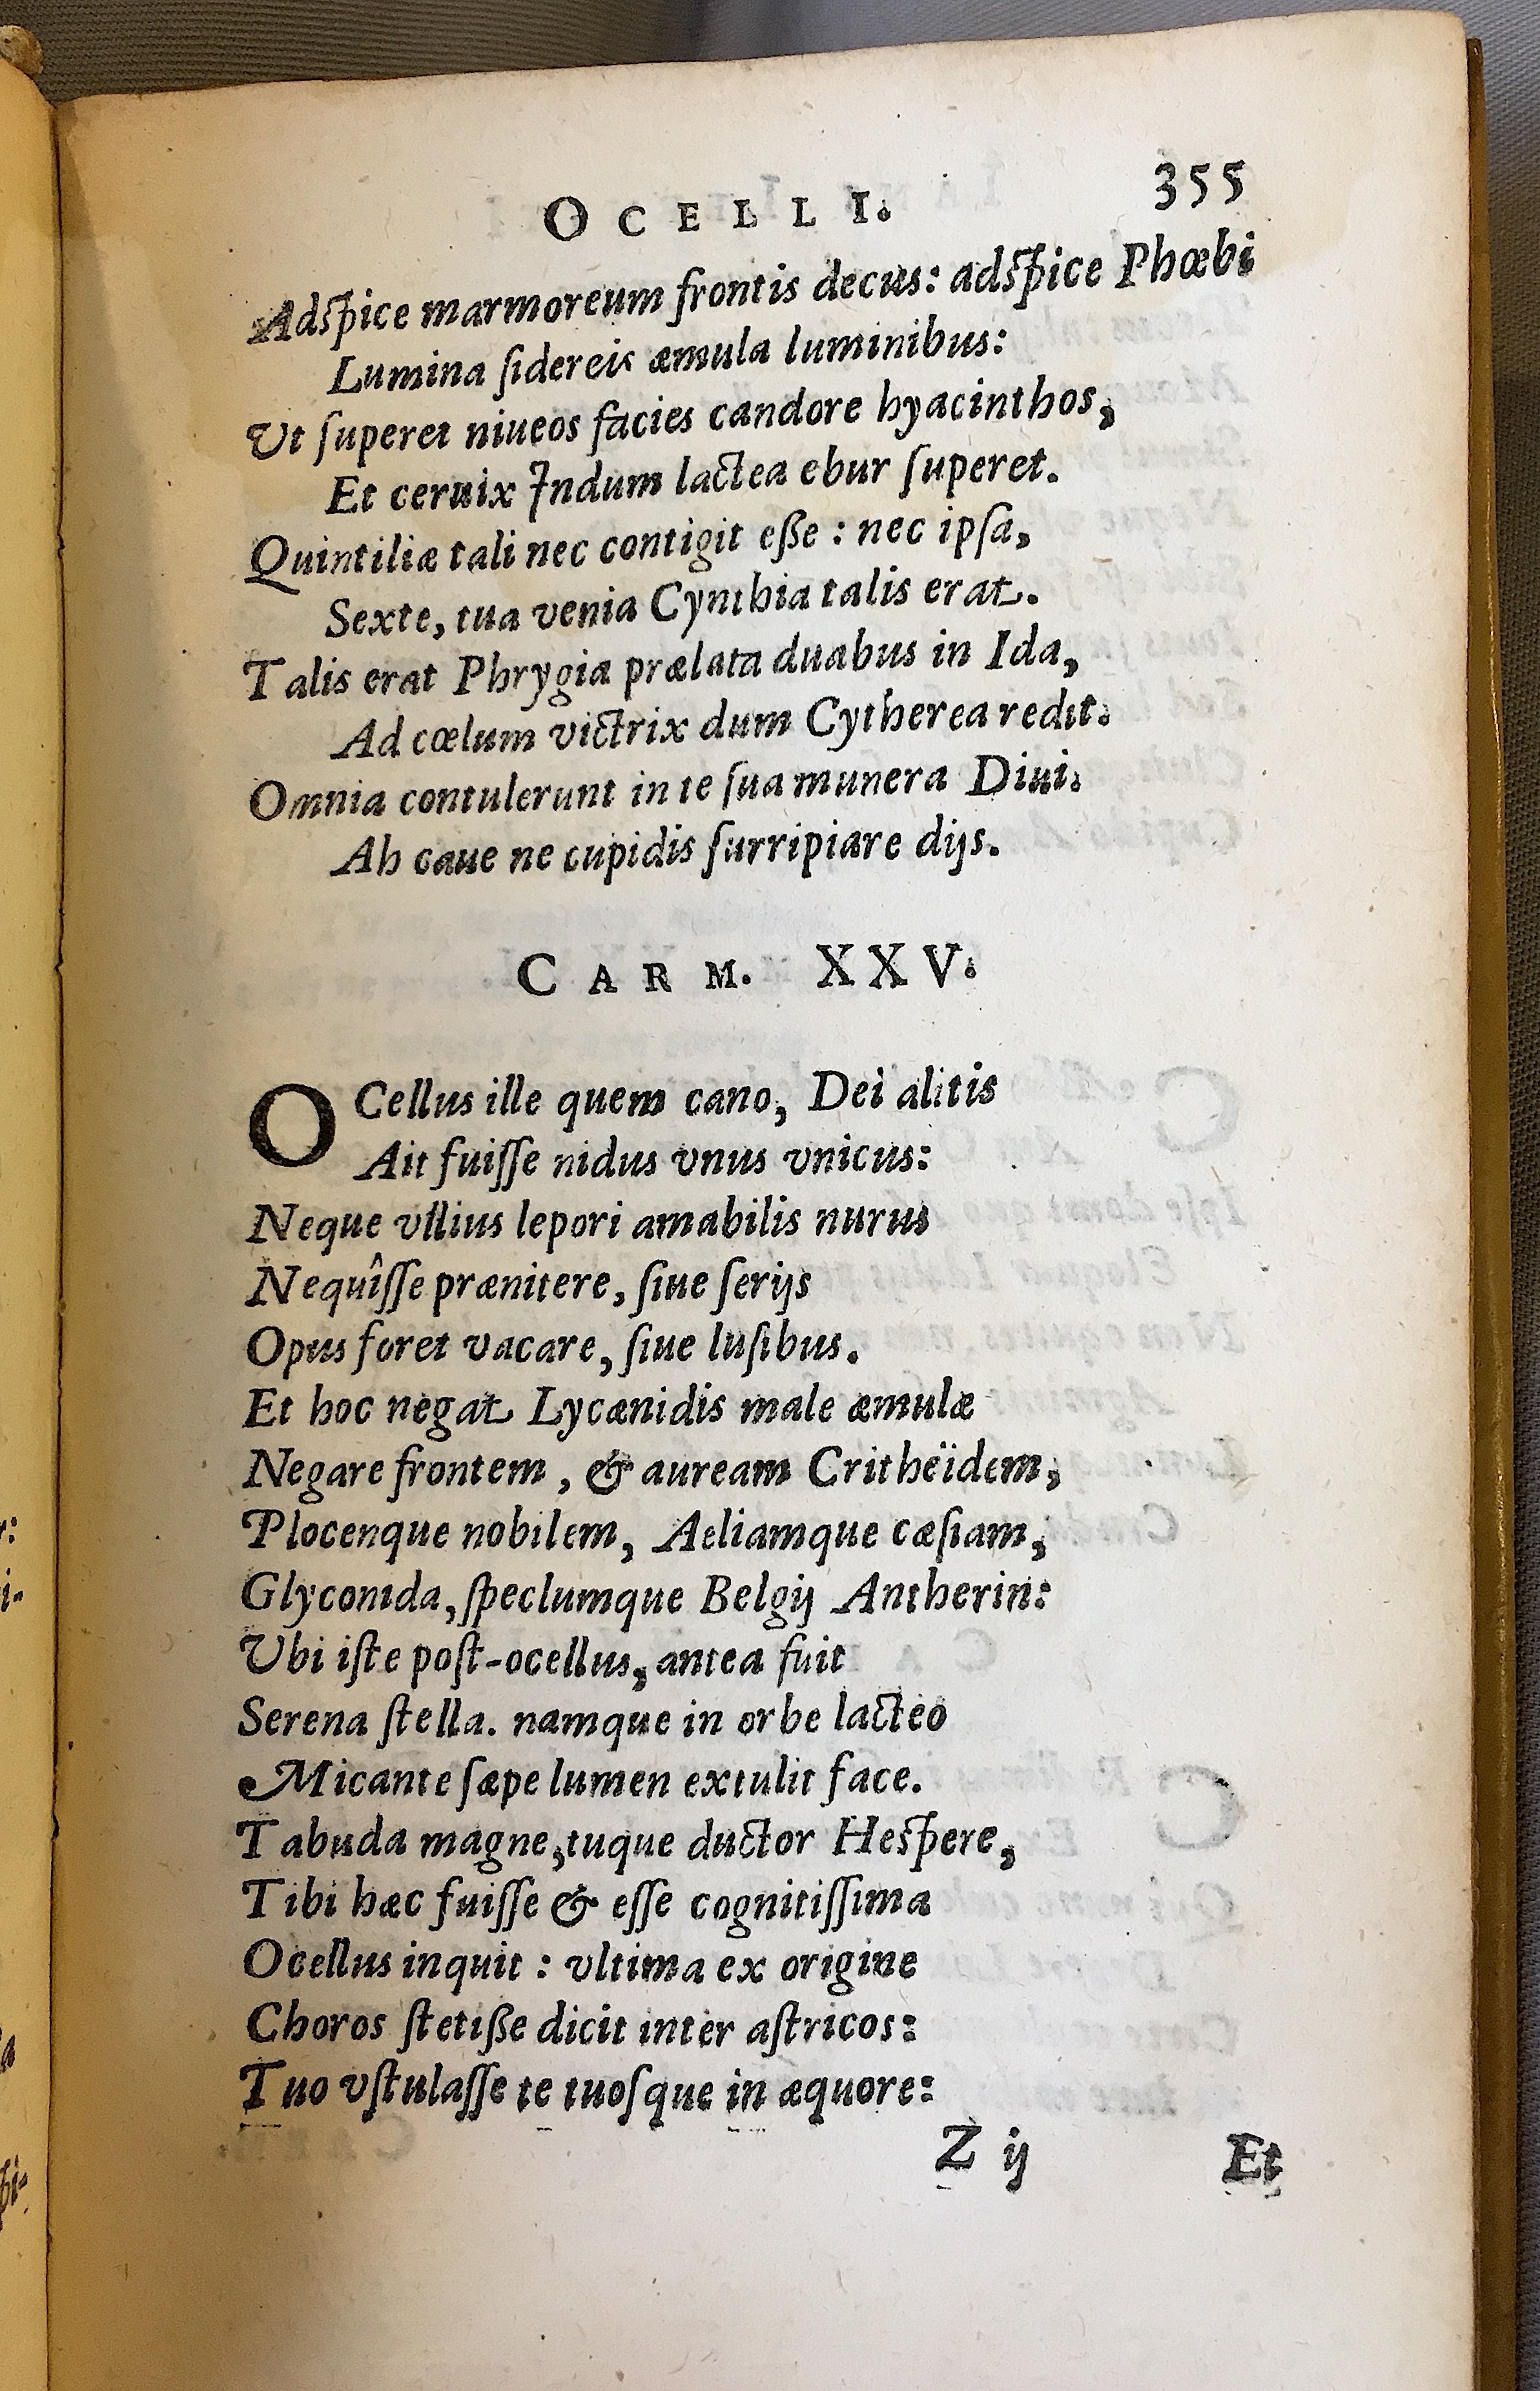 OCELLI. 355
Adspice marmoreum frontis decus: adspice Phœbi
Lumina ſidereis æmula luminibus:
Ut ſuperet niueos facies candore hyacinthos,
Et ceruix Indum lactea ebur ſuperet.
Quintiliæ tali nec contigit eſſe : nec ipſa,
Sexte, tua venia Cynthia talis erat.
Talis erat Phrygia prælata duabus in Ida,
Ad cœlum victrix dum Cytherea redit.
Omnia contulerunt in te ſua munera Diui.
Ah caue ne cupidis ſurripiare dijs.
CARM. XXV.
OCellus ille quem cano, Dei alitis
Ait fuiſſe nidus vnus vnicus:
Neque vllius lepori amabilis nurus
Nequîſſe prænitere, ſiue ſerijs
Opus foret vacare, ſiue luſibus.
Et hoc negat Lycænidis male æmulæ
Negare frontem, & auream Critheïdem,
Plocenque nobilem, Aeliamque cæſiam,
Glyconida, ſpeclumque Belgij Antherin:
Ubi iſte poſt-ocellus, antea fuit
Serena ſtella. namque in orbe lacteo
Micante ſæpe lumen extulit face.
Tabuda magne, tuque ductor Heſpere,
Tibi hæc fuiſſe & eſſe cognitiſſima
Ocellus inquit : vltima ex origine
Choros ſtetiſſe dicit inter aſtricos:
Tuo vſtulaſſe te tuoſque in æquore:
Z ij Et